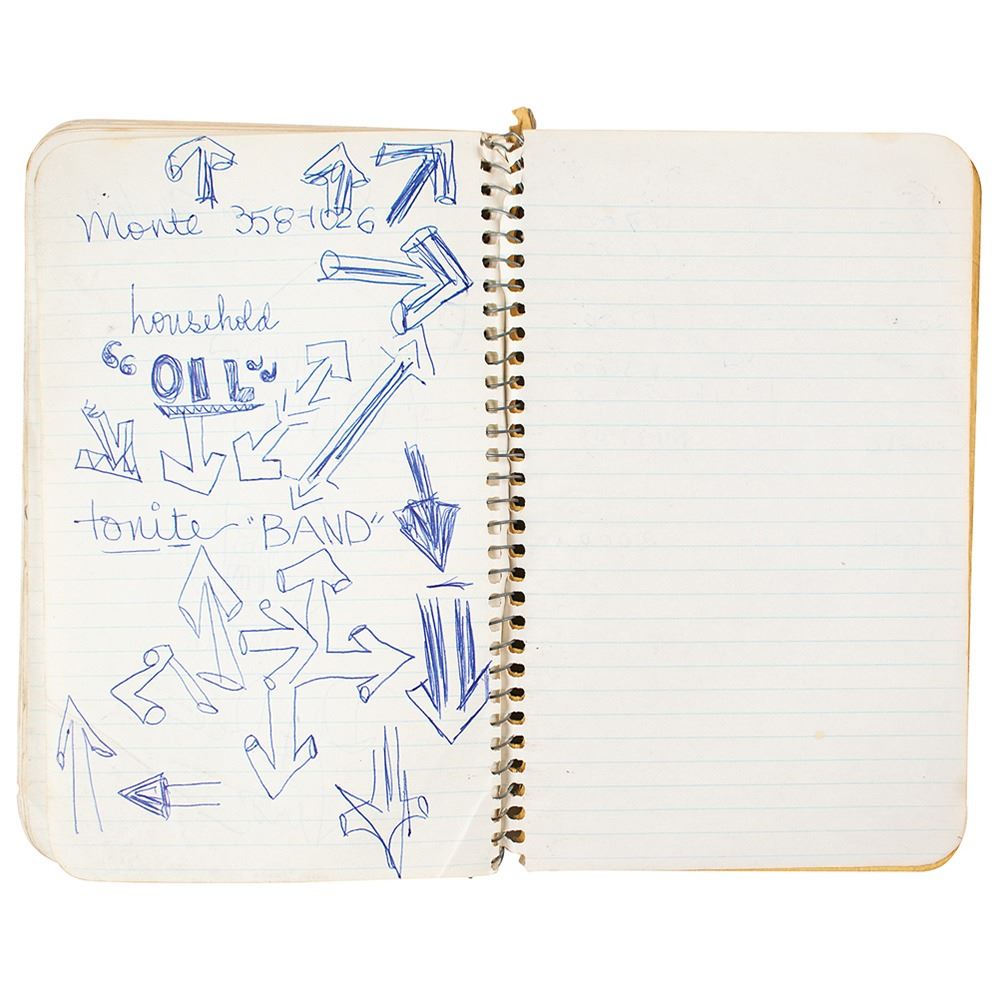 Monte 358-1026
household
“OIL”
tonite "BAND"